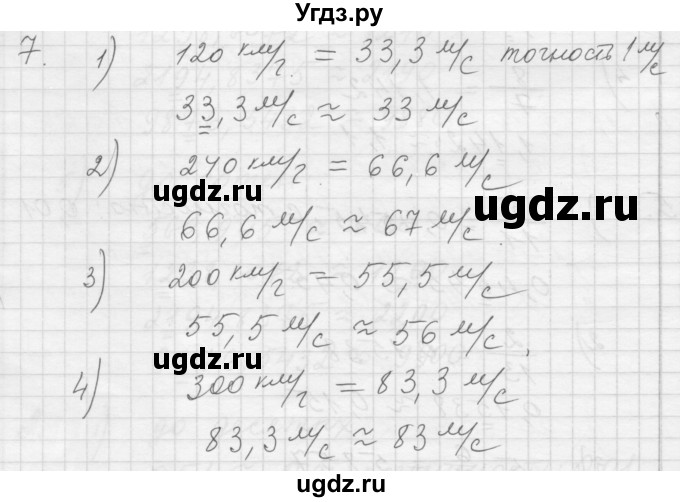 Угдз.ру
7. 1) 120 км/г = 33,3 м/с точность 1 м/с
33,3 м/с ≈ 33 м/с
2) 240 км/г = 66,6 м/с
ugdz.ru
ugdz.ru
66,6 м/с ≈ 67 м/с
3) 200 км/г = 55,5 м/с
55,5 м/с ≈ 56 м/с
ugdz.ru
4) 300 км/г = 83,3 м/с
83,3 м/с ≈ 83 м/с